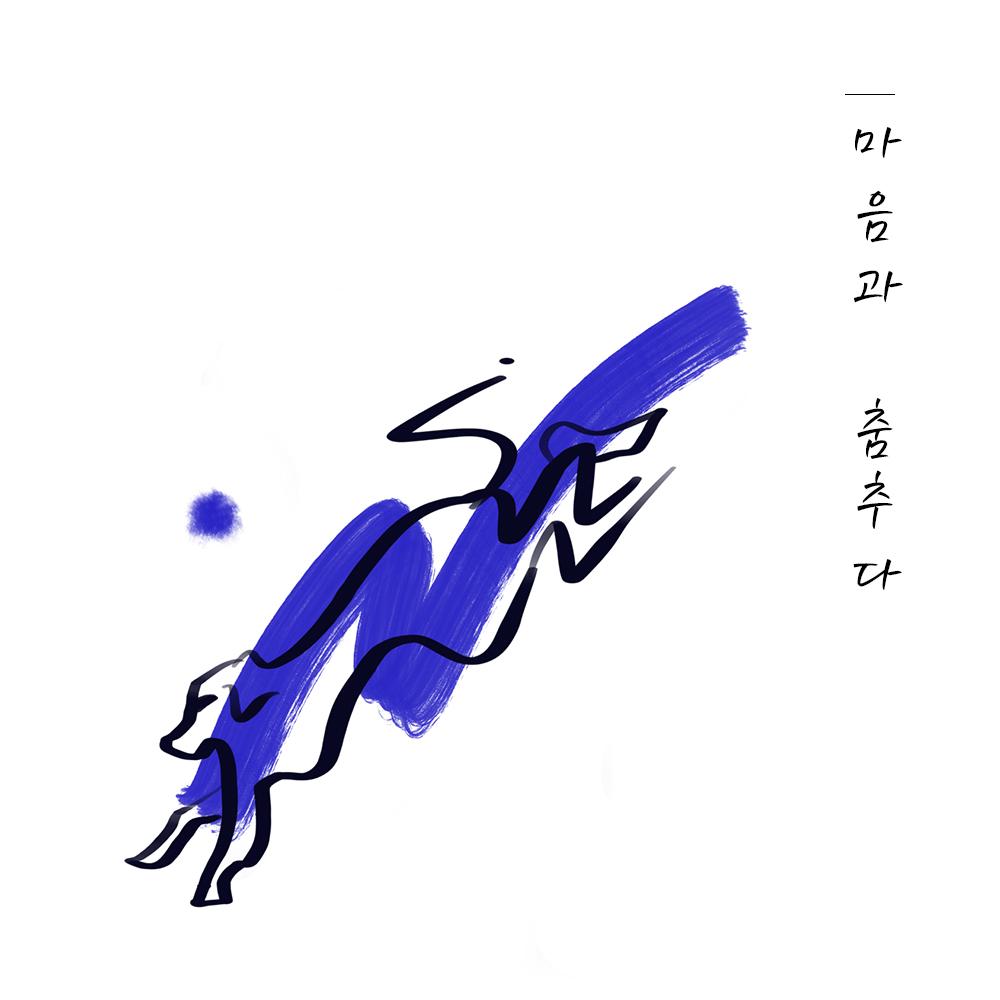 마음과 춤추다